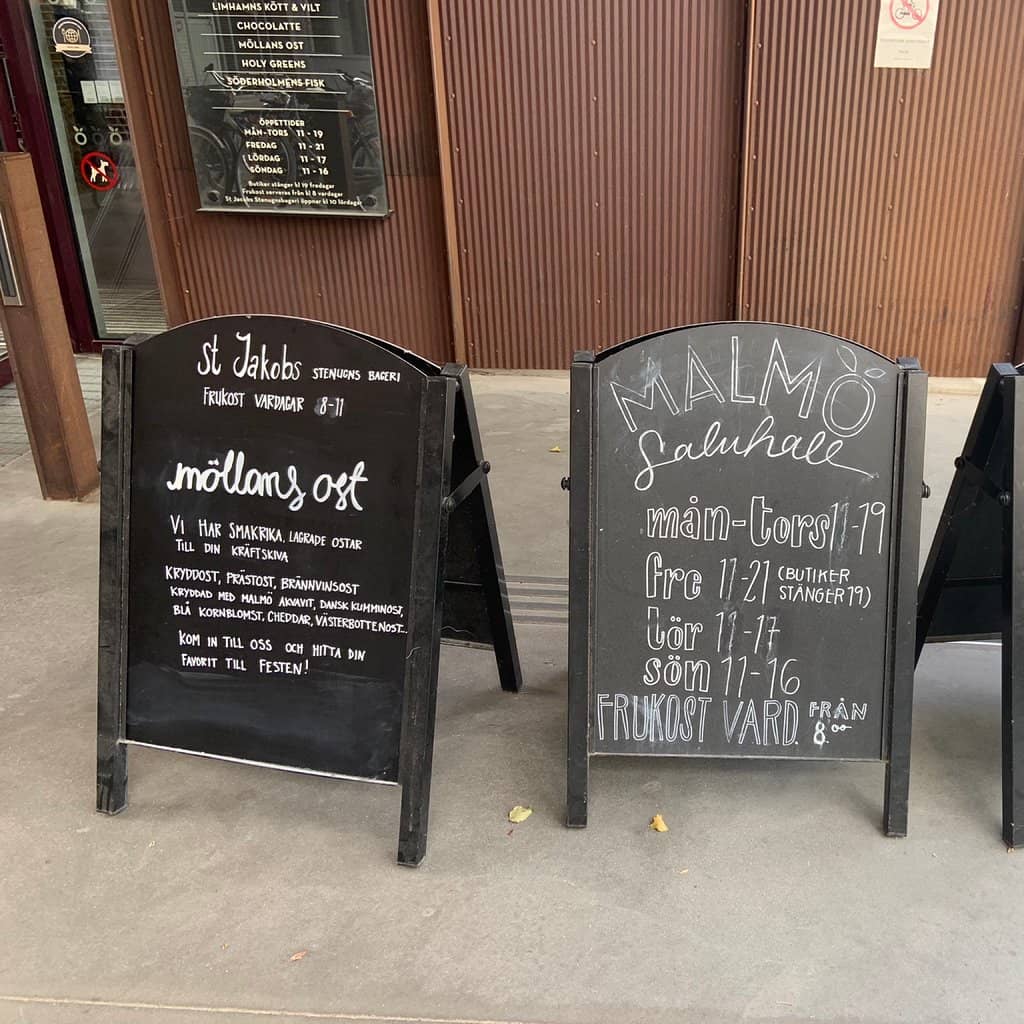 LIMHAMNS KÖTT & VILT
CHOCOLATTE
MÖLLANS OST
HOLY GREENS
SÖDERHOLMENS FISK
ÖPPETTIDER
MÅN-TORS 11 - 19
FREDAG 11 - 21
LÖRDAG 11 - 17
SÖNDAG 11 - 16
Butiker stänger kl 19 fredagar
Frukost serveras från kl 8 vardagar
St Jacobs Stenugnsbageri öppnar kl 10 lördagar
St Jakobs STENUGNS BAGERI
FRUKOST VARDAGAR 8-11
möllans ost
VI HAR SMAKRIKA, LAGRADE OSTAR
TILL DIN KRÄFTSKIVA
KRYDDOST, PRÄSTOST, BRÄNNVINSOST
KRYDDAD MED MALMÖ AKVAVIT, DANSK KUMMINOST,
BLÅ KORNBLOMST, CHEDDAR, VÄSTERBOTTENOST...
KOM IN TILL OSS OCH HITTA DIN
FAVORIT TILL FESTEN!
MALMÖ
Saluhall
mån-tors 11-19
fre 11-21 (BUTIKER
STÄNGER 19)
lör 11-17
sön 11-16
FRUKOST VARD. FRÅN
8.00